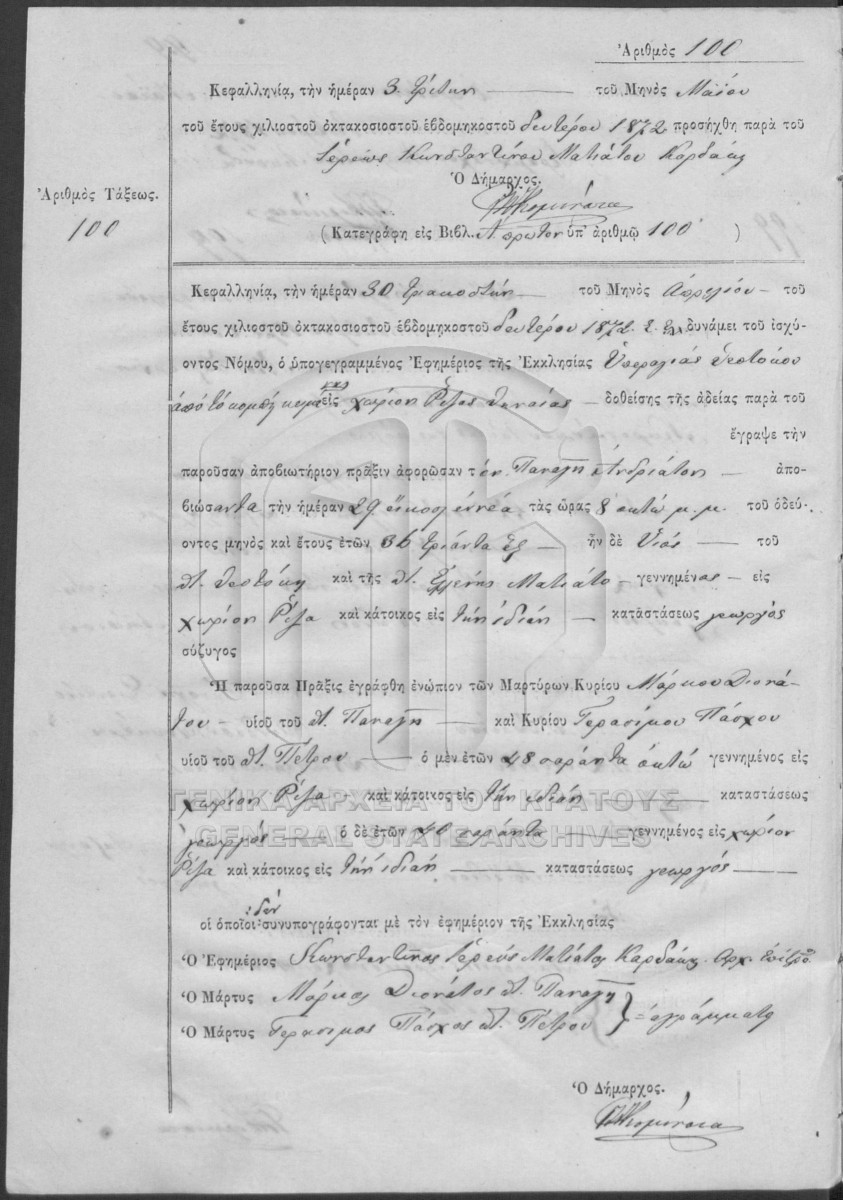 Ἀριθμὸς 100
Κεφαλληνίᾳ, τὴν ἡμέραν 3 τρίτην τοῦ Μηνὸς Μαΐου
τοῦ ἔτους χιλιοστοῦ ὀκτακοσιοστοῦ ἑβδομηκοστοῦ δευτέρου 1872 προσήχθη παρὰ τοῦ
Ἱερέως Κωνσταντίνου Ματιάτου Καρδάκη
Ὁ Δήμαρχος.
Ἀριθμὸς Τάξεως.
100
( Κατεγράφη εἰς Βιβλ. Α πρῶτον ὑπ' ἀριθμῷ 100 )
Κεφαλληνίᾳ, τὴν ἡμέραν 30 τριακοστὴν τοῦ Μηνὸς Ἀπριλίου τοῦ
ἔτους χιλιοστοῦ ὀκτακοσιοστοῦ ἑβδομηκοστοῦ δευτέρου 1872 δυνάμει τοῦ ἰσχύ-
οντος Νόμου, ὁ ὑπογεγραμμένος Ἐφημέριος τῆς Ἐκκλησίας Ὑπεραγίας Θεοτόκου
εἰς χωρίον Ρίζες Θηναίας δοθείσης τῆς ἀδείας παρὰ τοῦ
ἔγραψε τὴν
παροῦσαν ἀποβιωτήριον πρᾶξιν ἀφορῶσαν τὸν Παναγῆ Ἀνδριάτον ἀπο-
βιώσαντα τὴν ἡμέραν 29 εἴκοσι ἐννέα τὰς ὥρας 8 ὀκτώ μ.μ. τοῦ ὁδεύ-
οντος μηνὸς καὶ ἔτους ἐτῶν 36 τριάντα ἓξ ἦν δὲ Υἱός τοῦ
π. Θεοτόκη καὶ τῆς π. Ἑλένης Ματιάτο γεννημένος εἰς
χωρίον Ρίζα καὶ κάτοικος εἰς τὴν ἰδίαν καταστάσεως γεωργός
σύζυγος
Ἡ παροῦσα Πρᾶξις ἐγράφθη ἐνώπιον τῶν Μαρτύρων Κυρίου Μάρκου Διονά-
του υἱοῦ τοῦ π. Παναγῆ καὶ Κυρίου Γερασίμου Πάσχου
υἱοῦ τοῦ π. Πέτρου ὁ μὲν ἐτῶν 48 σαράντα ὀκτώ γεννημένος εἰς
χωρίον Ρίζα καὶ κάτοικος εἰς τὴν ἰδίαν καταστάσεως
γεωργός ὁ δὲ ἐτῶν 40 σαράντα γεννημένος εἰς χωρίον
Ρίζα καὶ κάτοικος εἰς τὴν ἰδίαν καταστάσεως γεωργός
δέν
οἱ ὁποῖοι συνυπογράφονται μὲ τὸν ἐφημέριον τῆς Ἐκκλησίας
Ὁ Ἐφημέριος Κωνσταντῖνος Ἱερεύς Ματιάτος Καρδάκης
Ὁ Μάρτυς Μάρκος Διονάτος π. Παναγῆ
Ὁ Μάρτυς Γεράσιμος Πάσχος π. Πέτρου } = ἀγράμματοι
Ὁ Δήμαρχος.
ΓΕΝΙΚΑ ΑΡΧΕΙΑ ΤΟΥ ΚΡΑΤΟΥΣ
GENERAL STATE ARCHIVES